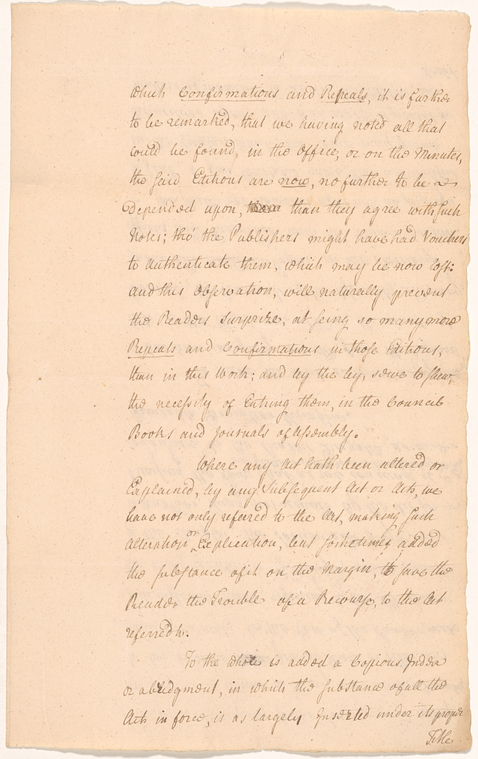 which Confirmations and Repeals, it is further
to be remarked, that we having noted all that
could be found, in the Office, or on the Minutes,
the said Editions are now, no further to be
Depended upon, than they agree with such
Notes; tho' the Publishers might have had Vouchers
to Authenticate them, which may be now lost:
and this Observation, will naturally prevent
the Readers Surprize, at seing so many more
Repeals and Confirmations in those Editions,
than in this Work; and by the by, serve to shew,
the necessity of Entring them, in the Council
Books and Journals of Assembly.
Where any Act hath been altered or
Explained, by any Subsequent Act or Acts, we
have not only referred to the Act, making such
Alteration or Explication, but sometimes added
the substance of it on the Margin, to save the
Reader the Trouble of a Recourse, to the Act
referred to.
To the whole is added a Copious Index
or abridgment, in which the substance of all the
Acts in force, is as largely Inserted under its proper
Title